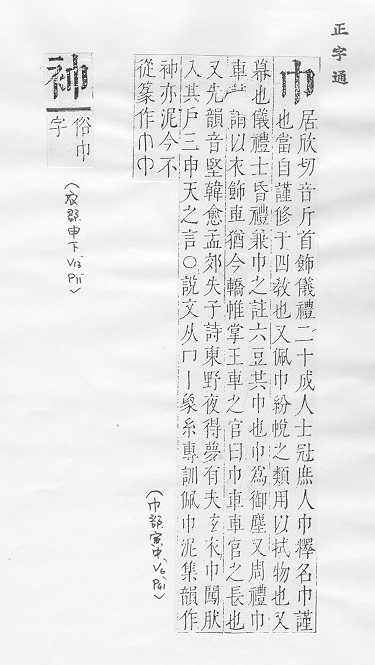 正字通
巾
居欣切音斤首飾儀禮二十成人士冠庶人巾釋名巾謹
也當自謹修于四敎也又佩巾紛帨之類用以拭物也又
幕也儀禮士昏禮兼巾之註六豆共巾也巾爲御塵又周禮巾
車註謂以衣飾車猶今轎帷掌王車之官曰巾車車官之長也
又先韻音堅韓愈孟郊失子詩東野夜得夢有夫玄衣巾闖肰
入其戶三申天之言〇說文从冂丨象糸專訓佩巾泥集韻作
𧘥亦泥今不
從篆作巾巾
𧘥
俗巾
字
(巾部寅中,V6,
(衣部申下V13 P11)